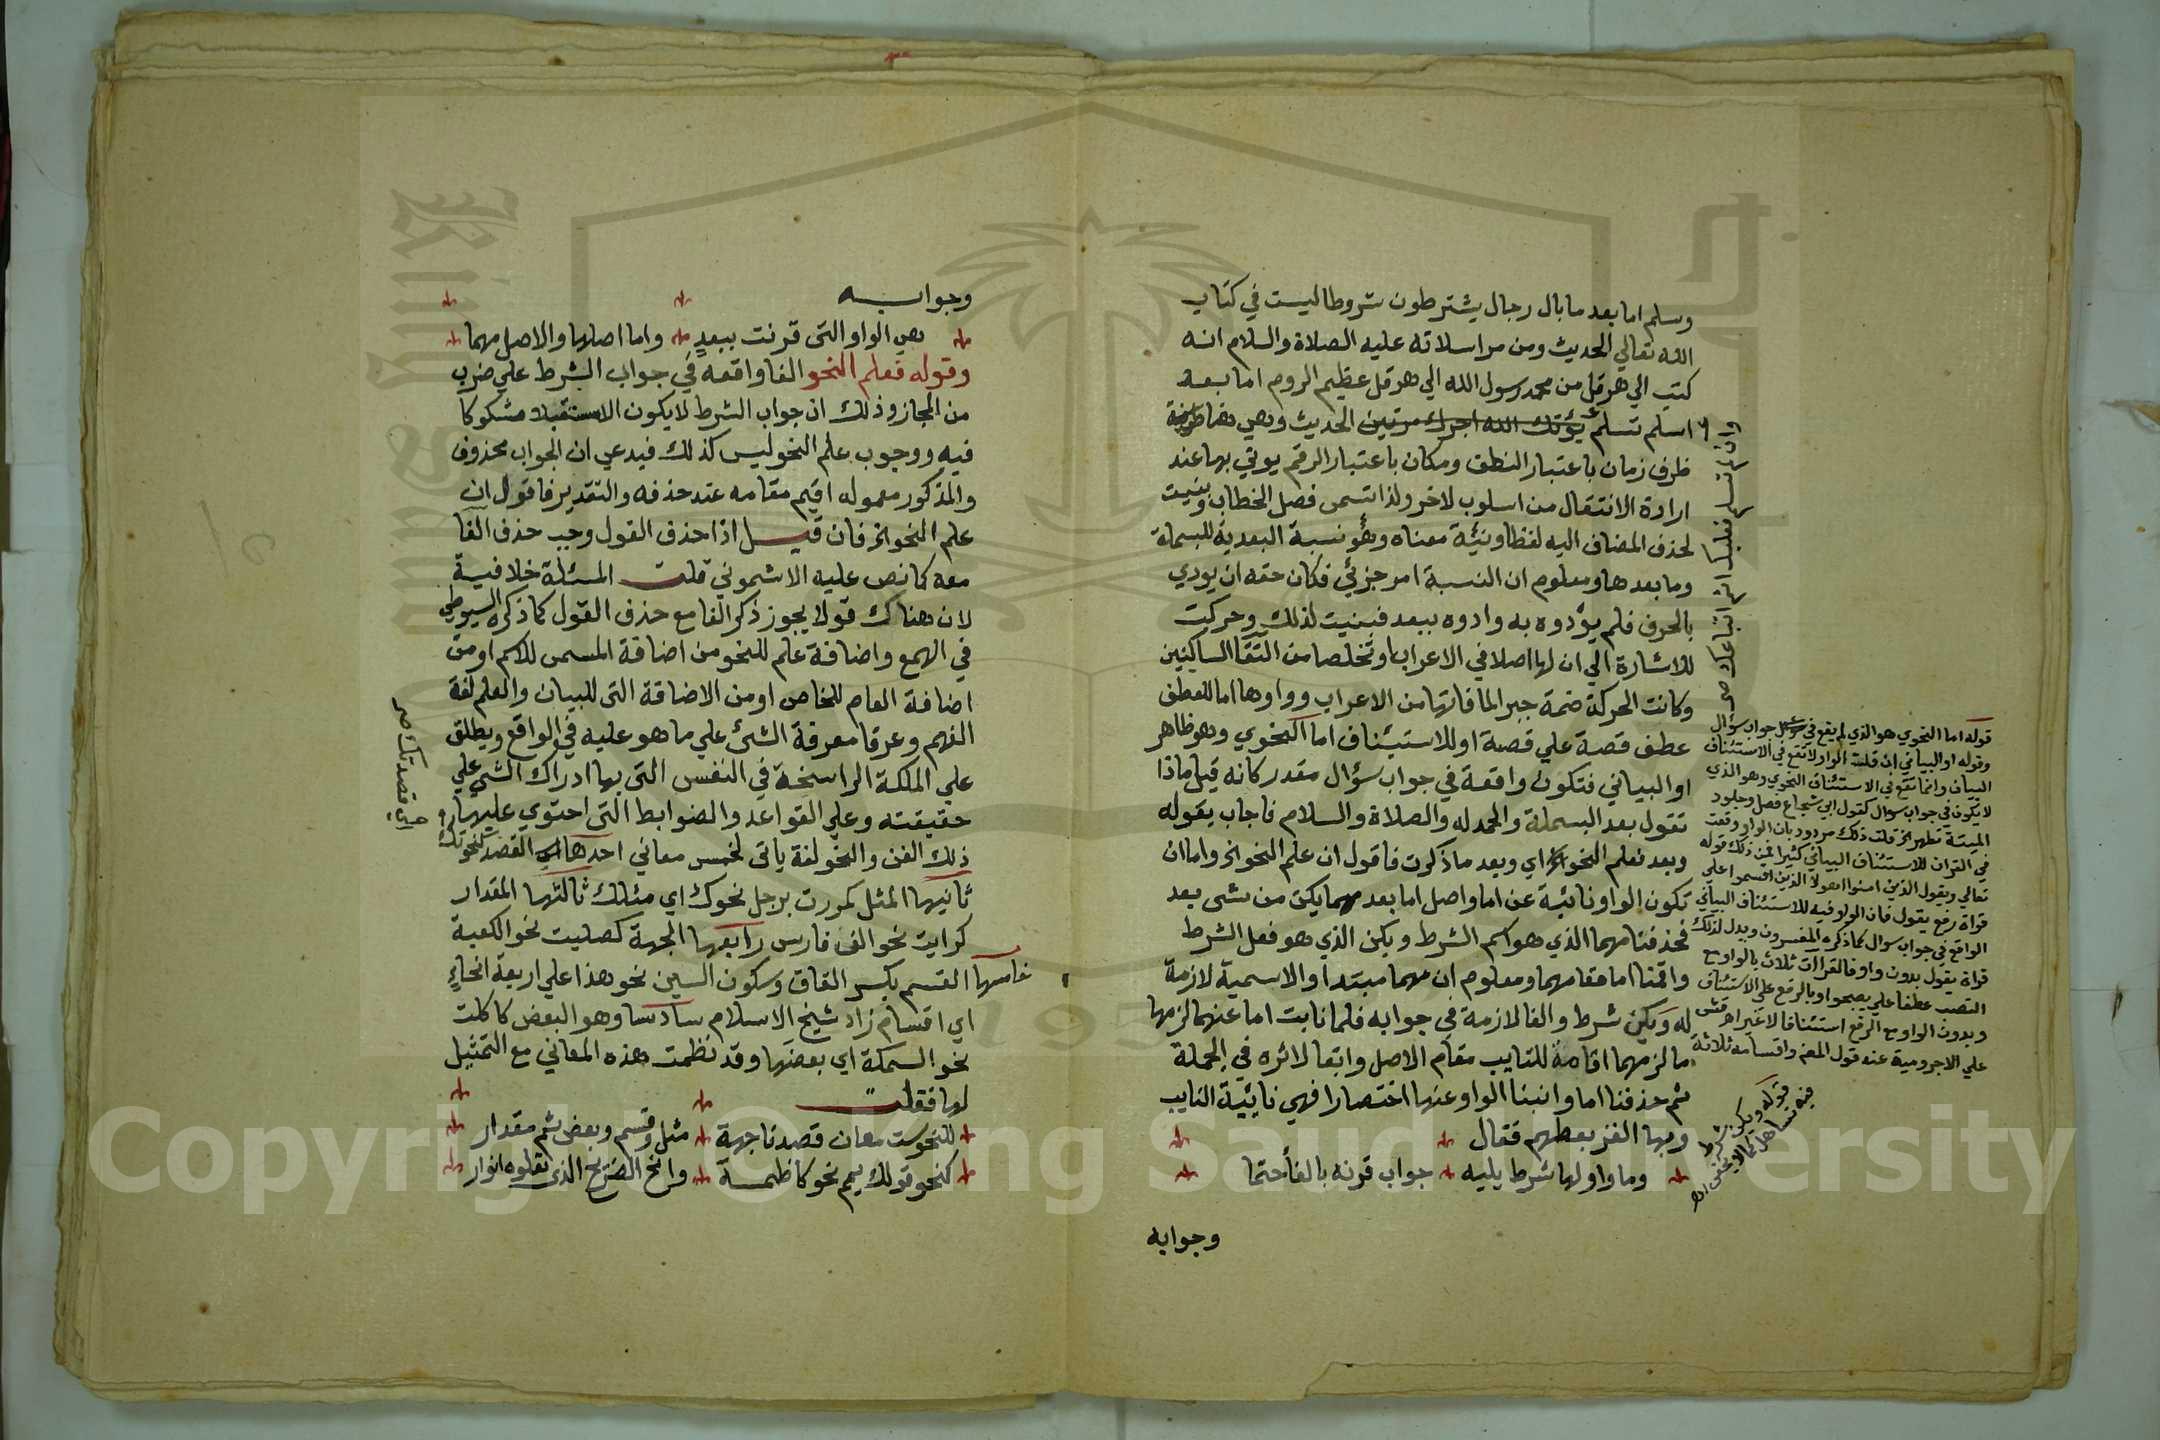 وسلم اما بعد ما بال رجال يشترطون شروطا ليست في كتاب
الله تعالي الحديث ومن مراسلاته عليه الصلاة والسلام انه
كتب الي هرقل من محمد رسول الله الي هرقل عظيم الروم اما بعد
اسلم تسلم يؤتك الله اجرك مرتين الحديث وهي هنا
ظرف زمان باعتبار النطق ومكان باعتبار الرقم يوتي بها عند
ارادة الانتقال من اسلوب لاخر ولذا تسمي فصل الخطاب وبنيت
لحذف المضاف اليه لفظا ونية معناه وهو نسبة البعدية للبسملة
وما بعدها ومعلوم ان النسبة امر جزئي فكان حقه ان يودي
بالحرف فلم يؤدوه به وادوه ببعد فبنيت لذلك وحركت
للاشارة الي ان لها اصلا في الاعراب وتخلصا من التقا الساكنين
وكانت الحركة ضمة جبرا لما فاتها من الاعراب وواوها اما للعطف
عطف قصة علي قصة او للاستيناف اما النحوي وهو ظاهر
او البياني فتكون واقعة في جواب سؤال مقدر كانه قيل ماذا
تقول بعد البسملة والحمدله والصلاة والسلام فاجاب بقوله
وبعد فعلم النحو اي وبعد ما ذكرت فاقول ان علم النحو الخ واما ان
تكون الواو نائبة عن اما واصل اما بعد مهما يكن من شي بعد
فحذفنا مهما الذي هو اسم الشرط ويكن الذي هو فعل الشرط
واقمنا اما مقامهما ومعلوم ان مهما مبتدا والاسمية لازمة
له ويكن شرط والفا لازمة في جوابه فلما نابت اما عنهما لزمها
ما لزمهما اقامة للنايب مقام الاصل وابقا لاثره في الجملة
ثم حذفنا اما وانبنا الواو عنها اختصارا فهي نائبة النايب
وبها الغز بعضهم فقال
وما واو لها شرط يليه جواب قرنه بالفا حتما
وجوابه
وانها تسلم
قوله اما النحوي هو الذي لم يقع في جواب سؤال
وقوله او البياني ان قلت الواو لا تقع في الاستئناف
البياني وانما تقع في الاستئناف النحوي وهو الذي
لا يكون في جواب سوال كقول ابي شجاع فصل وجلود
الميتة تطهر الخ قلت ذلك مردود بان الواو وقعت
في القران للاستئناف البياني كثيرا فمن ذلك قوله
تعالي ويقول الذين امنوا اهولا الذين اقسموا علي
قراة رفع يقول فان الواو فيه للاستئناف البياني
الواقع في جواب سوال كما ذكره المفسرون ويدل لذلك
قراة يقول بدون واو فالقراآت ثلاث بالواو مع
النصب عطفا علي يصبحوا وبالرفع علي الاستئناف
وبدون الواو مع الرفع استئنافا لا غير اه
علي الاجرومية عند قول المص واقسامه ثلاثة
قوله ويكن شرط
وجوابه
هي الواو التي قرنت ببعد واما اصلها والاصل مهما
وقوله فعلم النحو الفا واقعة في جواب الشرط علي ضرب
من المجاز وذلك ان جواب الشرط لا يكون الا مستقبلا مشكوكا
فيه ووجوب علم النحو ليس كذلك فيدعي ان الجواب محذوف
والمذكور معموله اقيم مقامه عند حذفه والتقدير فاقول ان
علم النحو الخ فان قيل اذا حذف القول وجب حذف الفا
معه كما نص عليه الاشموني قلت المسئلة خلافية
لان هناك قولا يجوز ذكر الفا مع حذف القول كما ذكره السيوطي
في الهمع واضافة علم للنحو من اضافة المسمي للاسم او من
اضافة العام للخاص او من الاضافة التي للبيان والعلم لغة
الفهم وعرفا معرفة الشئ علي ما هو عليه في الواقع ويطلق
علي الملكة الراسخة في النفس التي بها ادراك الشي علي
حقيقته وعلي القواعد والضوابط التي احتوي عليها
ذلك الفن والنحو لغة ياتي لخمس معاني احدها القصد كنحوتك
اي قصدتك صح
ثانيها المثل كمررت برجل نحوك اي مثلك ثالثها المقدار
كرايت نحو الف فارس رابعها الجهة كصليت نحو الكعبة
خامسها القسم بكسر القاف وسكون السين نحو هذا علي اربعة انحاء
اي اقسام زاد شيخ الاسلام سادسا وهو البعض كاكلت
نحو السمكة اي بعضها وقد نظمت هذه المعاني مع التمثيل
لها فقلت
للنحو ست معان قصدنا جهة مثل وقسم وبعض ثم مقدار
كنحو قولك يمم نحو كاظمة وانح الضريح الذي تعلوه انوار
Copyright © King Saud University